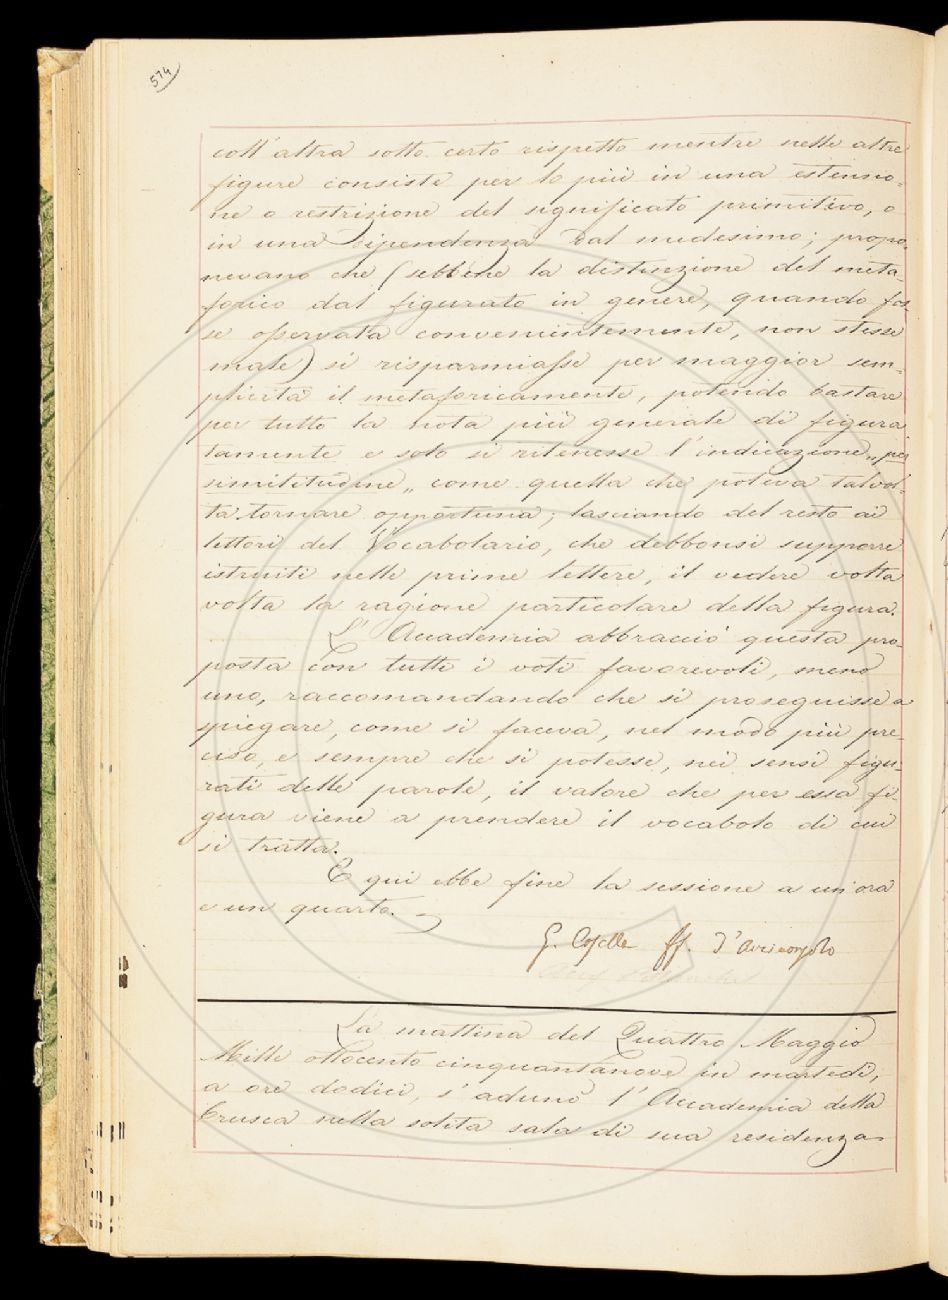 574
coll'altra sotto certo rispetto mentre nelle altre
figure consiste per lo più in una estensio-
ne o restrizione del significato primitivo, o
in una dipendenza dal medesimo; propo-
nevano che (sebbene la distinzione del meta-
forico dal figurato in genere, quando fos-
se osservata convenientemente, non stesse
male) si risparmiasse per maggior sem-
plicità il metaforicamente, potendo bastare
per tutto la nota più generale di figura-
tamente e solo si ritenesse l'indicazione „per
similitudine„ come quella che poteva talvol-
ta tornare opportuna; lasciando del resto ai
lettori del Vocabolario, che debbonsi supporre
istruiti nelle prime lettere, il vedere volta
volta la ragione particolare della figura.
L'Accademia abbracciò questa pro-
posta con tutti i voti favorevoli, meno
uno, raccomandando che si proseguisse a
spiegare, come si faceva, nel modo più pre-
ciso, e sempre che si potesse, nei sensi figu-
rati delle parole, il valore che per essa fi-
gura viene a prendere il vocabolo di cui
si tratta.
E qui ebbe fine la sessione a un'ora
e un quarto.
ff. d'Arciconsolo
La mattina del Quattro Maggio
Mille ottocento cinquantanove in martedì,
a ore dodici, s'adunò l'Accademia della
Crusca nella solita sala di sua residenza